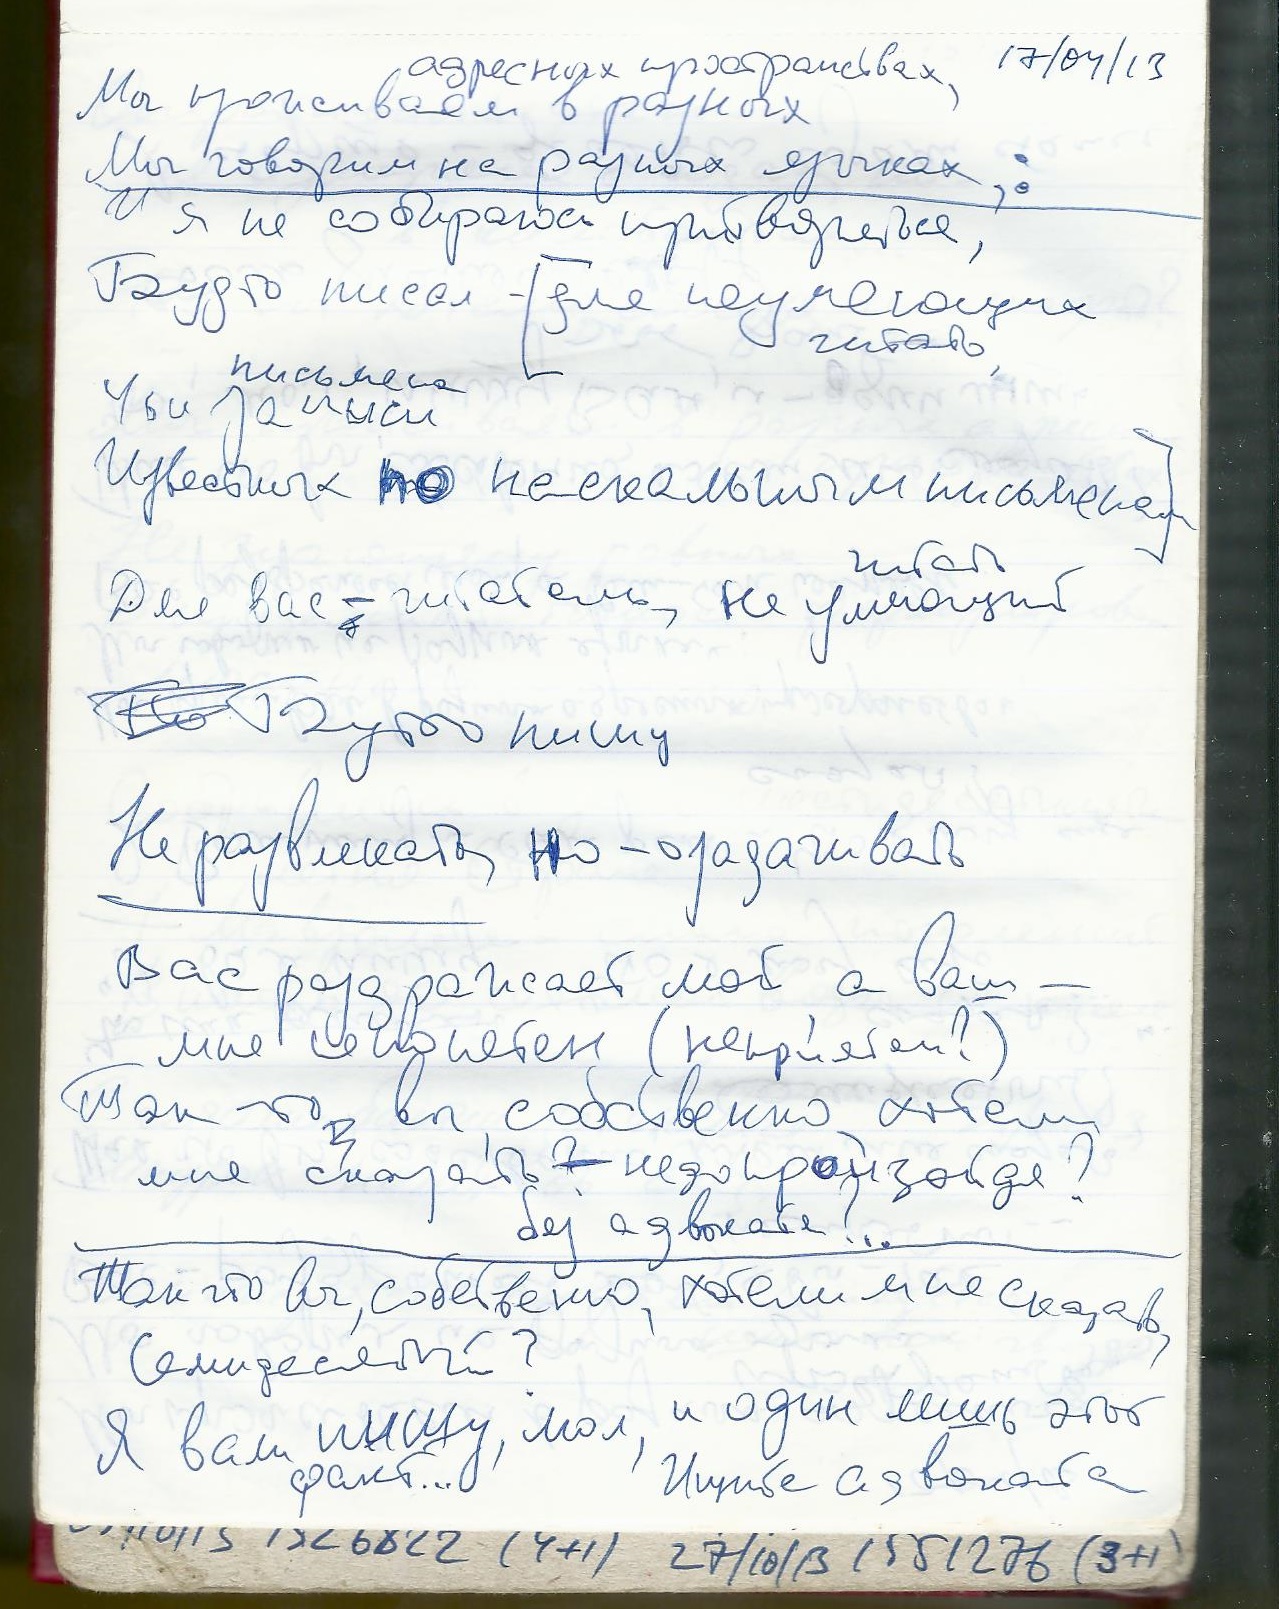 17/04/13
адресных пространствах,
Мы проживаем в разных
Мы говорим на разных языках,:
И я не собираюсь притворяться,
Будто писал - [для неумеющих
читать,
письмена
Чьи записи
Известных по наскальным письменам]
читать
Для вас - читатель, не умеющий
Будто пишу
Не развлекать, но - озадачивать
Вас раздражает мой а ваш —
— мне непонятен (неприятен?)
Так что, вы, собственно, хотели
мне сказать? - недопронзайде?
без адвоката!...
Так что вы, собственно, хотели мне сказать,
Семидесятый?
Я вам пишу, мол, и один лишь этот
факт... Ищите адвоката
/10/13 1526822 (4+1) 27/10/13 1551276 (3+1